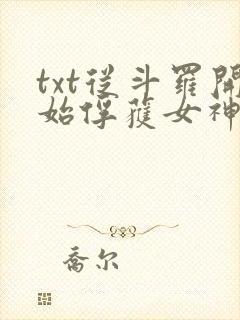 txt從斗羅開
始俘獲女神
喬尔